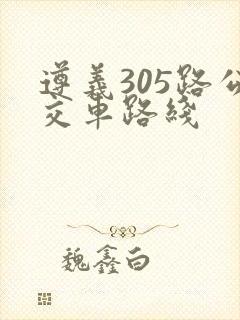 遵義305路公
交車路綫
魏鑫白